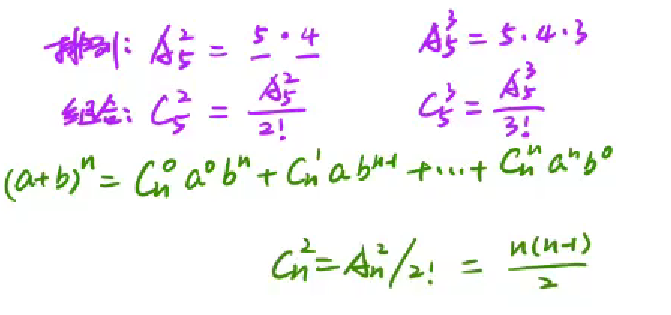 排列: A₅² = 5·4 A₅³ = 5·4·3
组合: C₅² = A₅²/2! C₅³ = A₅³/3!
(a+b)ⁿ = Cₙ⁰a⁰bⁿ + Cₙ¹abⁿ⁻¹ + ... + Cₙⁿaⁿb⁰
Cₙ² = Aₙ²/2! = n(n-1)/2